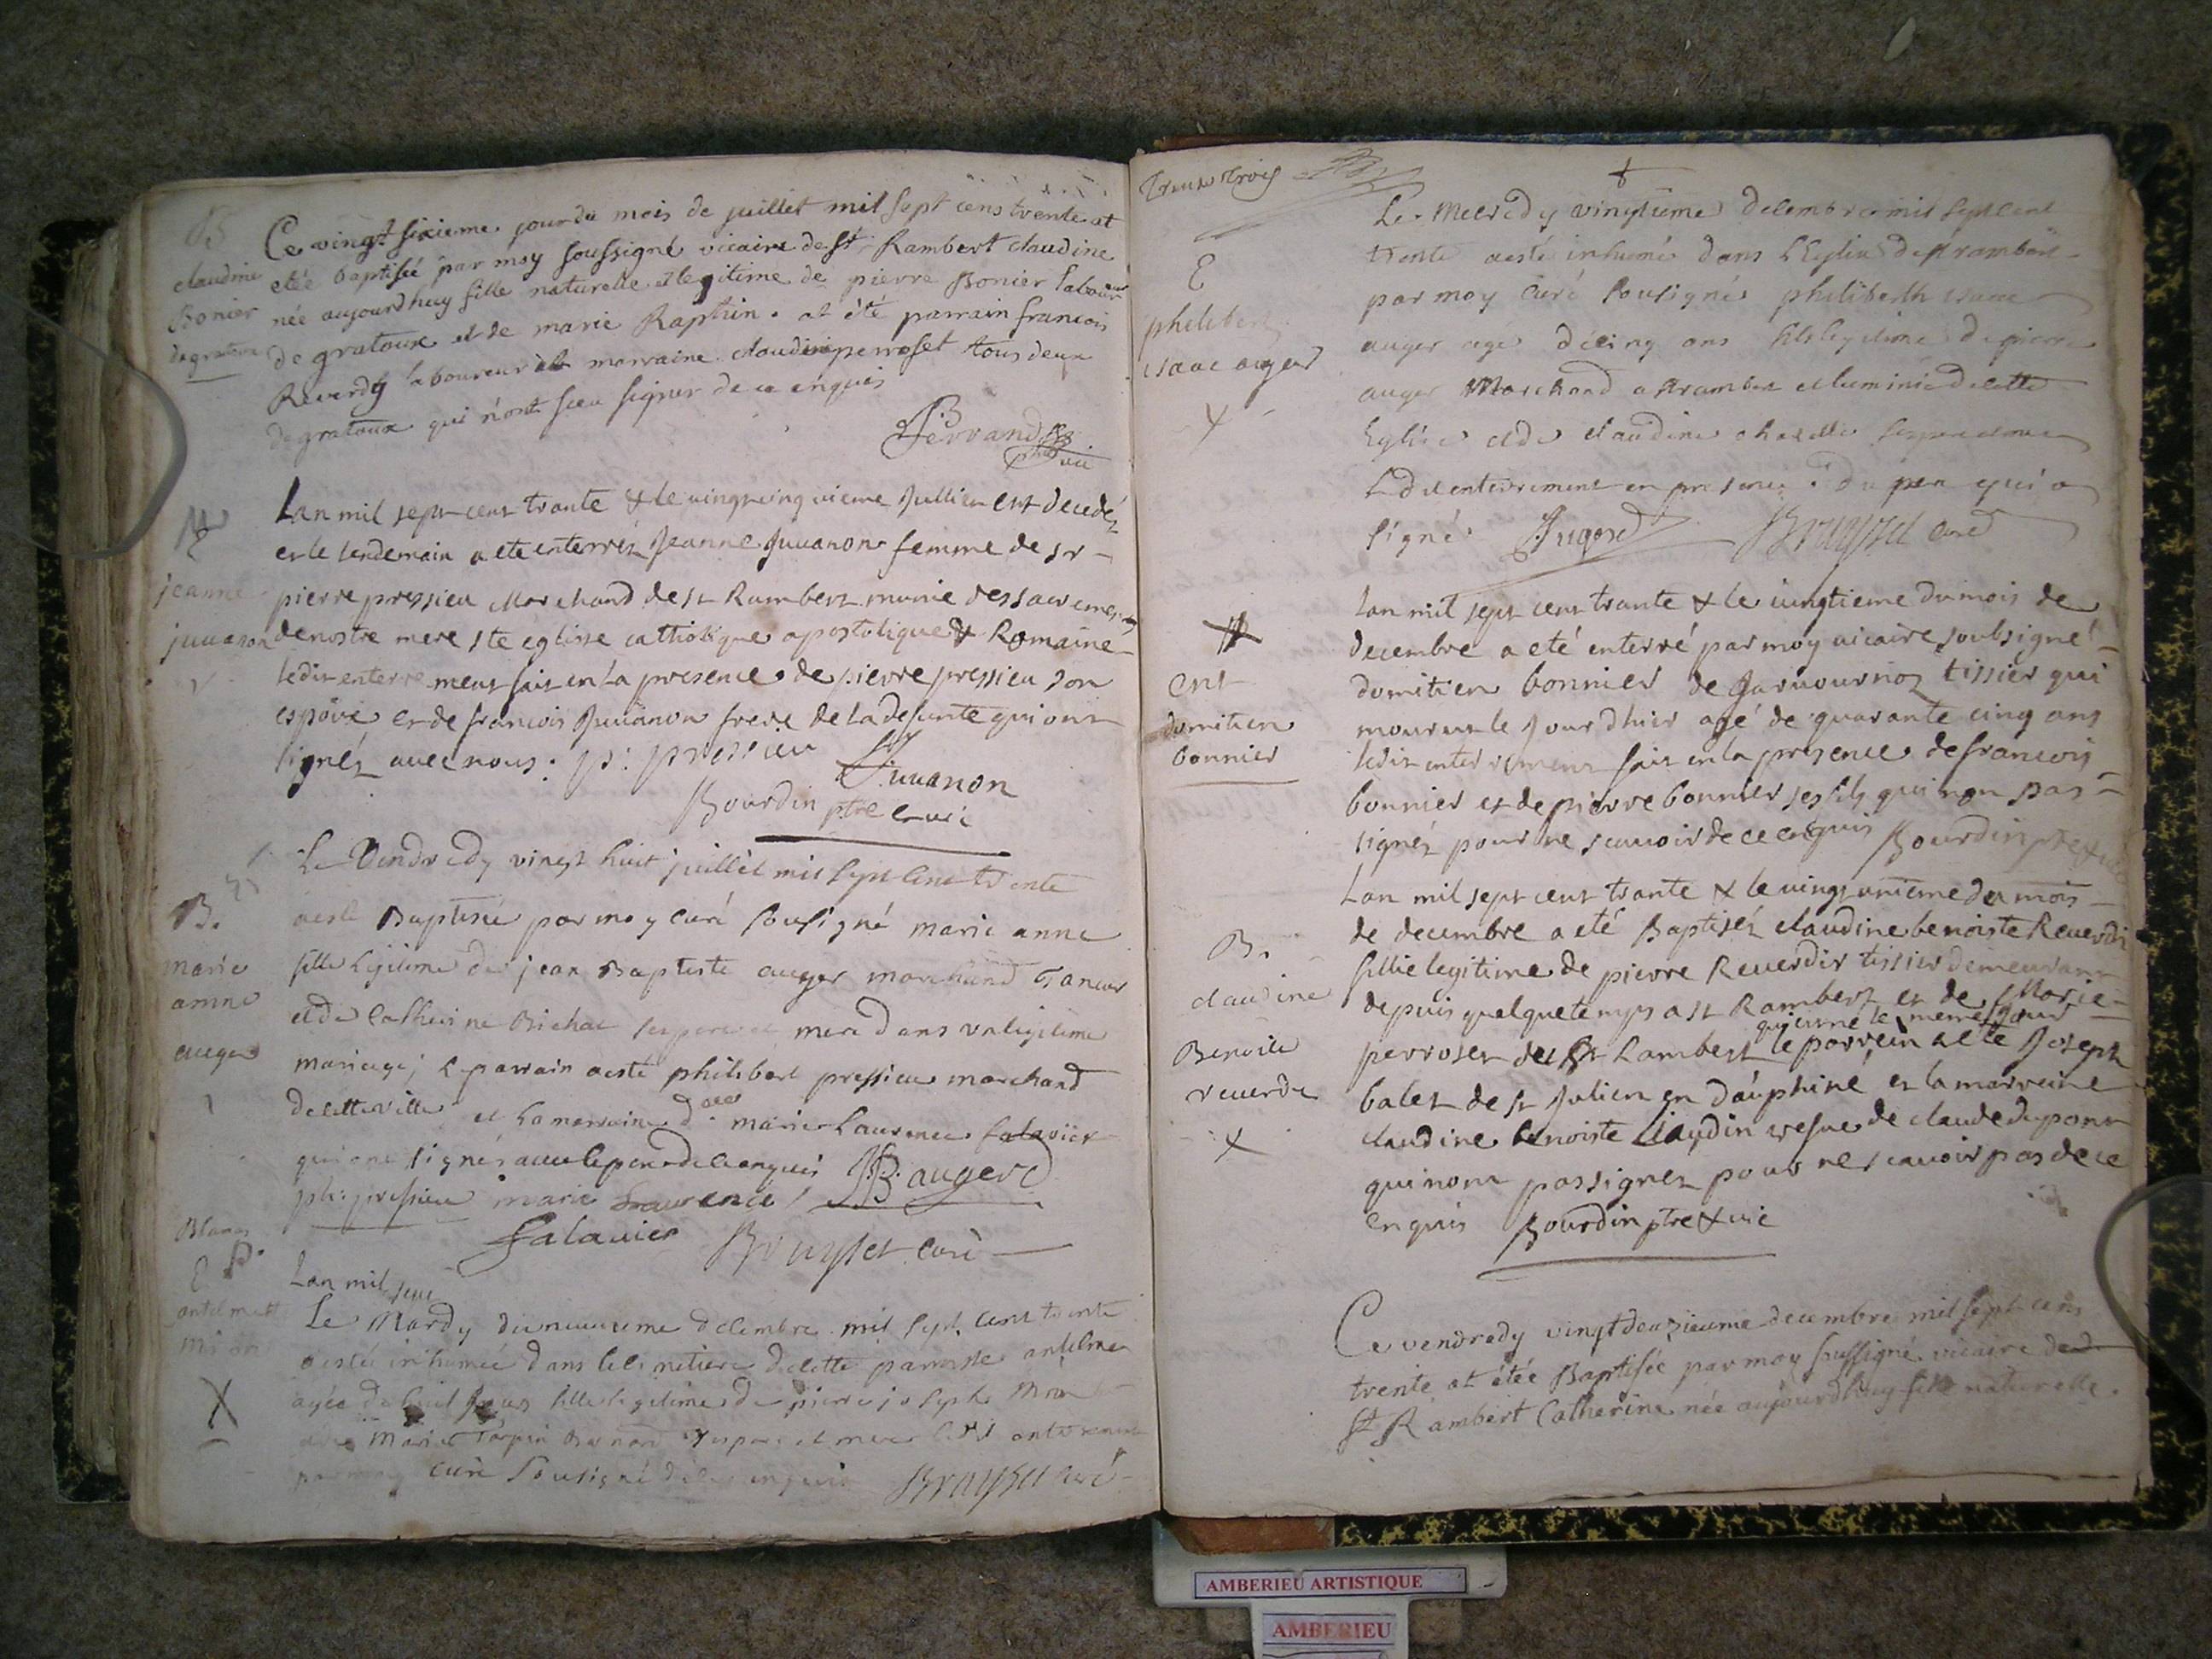 B
claudine
Bonier
de gratoux
Ce vingt sixieme jour du mois de juillet mil sept cens trente at
etée baptisée par moy soussigné vicaire de St Rambert claudine
née aujourdhuy fille naturelle et legitime de pierre Bonier laboureur
de gratoux et de marie Raphin. at été parrain francois
Reverdy laboureur et marraine claudine perroset tous deux
de gratoux qui n'ont sceu signer de ce enquis
Pervand
ptre vic
jeanne
juvanon
Lan mil sept cent trante & le vingtcinquieme Jullier est decedéz
et le lendemain a ete enterréz Jeanne Juvanon femme de sr
pierre pressieu Marchand de st Rambert munie des sacremens
de nostre mere ste eglisse catholique apostolique & Romaine
ledit enterrement fait en la presence de pierre pressieu son
espoux et de francois Juvanon frere de la defunte qui ont
signéz avec nous: p: pressieu
Juvanon
Bourdin ptre & vic
B.
marie
anne
auger
Le Vendredy vingt huit juillet mil sept cent trente
a esté Baptisée par moy curé sousigné marie anne
fille legitime de jean Baptiste auger marchand Taneur
et de Catherine Bichat ses pere et mere dans un legitime
mariage; le parrain a esté philibert pressieu marchand
de cette ville et la marraine dlle marie Laurence falavier
qui ont signés avec le pere de ce enquis JB. augerd
ph: pressieu marie Laurence
falavier Bruyset curé
Blanas
E
antelmette
Mion
Lan mil sept
Le Mardy dixneuvieme decembre mil sept cent trente
a estée inhumée dans le cimetiere de cette parroisse antelme
agée de huit jours fille legitime de pierre joseph Mion
et de Marie Tarpin Bernard ses pere et mere ledit enterrement
par moy curé sousigné de ce enquis Bruyset curé
Trente Trois
E
philibert
isaac auger
X
Le Mercredy vingtieme decembre mil sept cent
trente a esté inhumé dans l'Eglise de st rambert
par moy curé sousigné philiberth isaac
auger agé de cinq ans fils legitime de pierre
auger Marchand a st rambert et luminié de cette
Eglise et de claudine chazelle ses pere et mere
Led. enterrement en presence du pere qui a
signé. Augerd Bruyset curé
ent
domitien
bonnier
Lan mil sept cent trante & le vingtieme du mois de
decembre a eté enterré par moy vicaire soubsigné
domitien bonnier de Javournoz tissier qui
mourut le Jour dhier agé de quarante cinq ans
ledit enterrement fait en la presence de francois
bonnier et de pierre bonnier ses fils qui non pas
signéz pour ne scavoir de ce enquis Bourdin ptre & vic
B.
claudine
Benoite
reverdi
X
Lan mil sept cent trante & le vingt unieme du mois
de decembre a eté Baptiséz claudine benoiste Reverdi
fillie legitime de pierre Reverdir tissier demeurant
depuis quelque temps a st Rambert et de Marie
qui est né le meme jour
perroset de St Lambert le parrein a ete Joseph
balet de st Julien en dauphiné et la marreine
claudine benoiste Claudin vesve de claude dupont
qui nont pas signez pour ne scavoir pas de ce
enquis Bourdin ptre & vic
Ce vendredy vingt deuzieme decembre mil sept cens
trente at étée Baptisée par moy soussigné vicaire de
St Rambert Catherine née aujourdhuy fille naturelle
AMBERIEU ARTISTIQUE
AMBERIEU